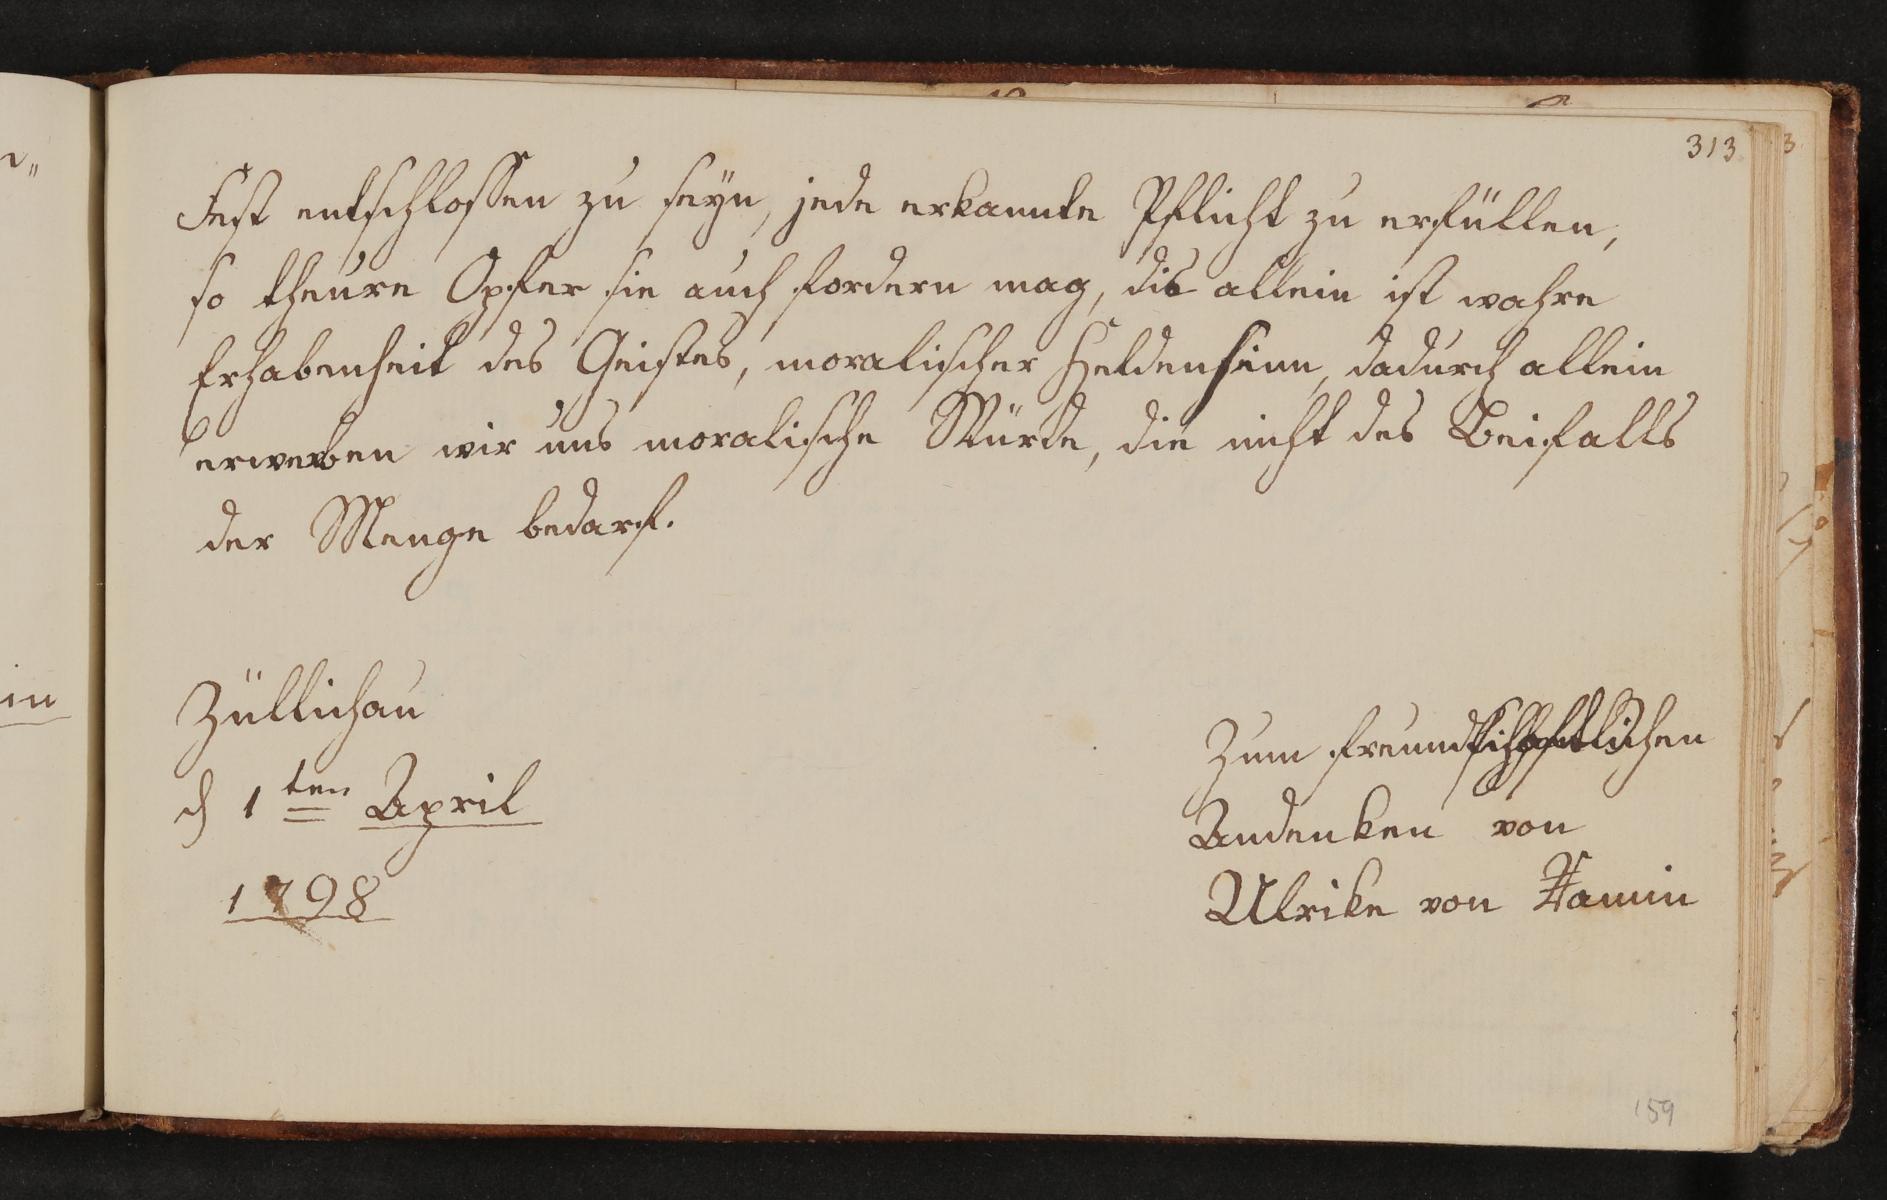 313
Fest entschlossen zu seyn, jede erkannte Pflicht zu erfüllen,
so theure Opfer sie auch fordern mag, dis allein ist wahre
Erhabenheit des Geistes, moralischer Heldensinn, dadurch allein
erwerben wir uns moralische Würde, die nicht des Beifalls
der Menge bedarf.
Züllichau
d 1ten April
1798
Zum freundschaftlichen
Andenken von
Ulrike von
159